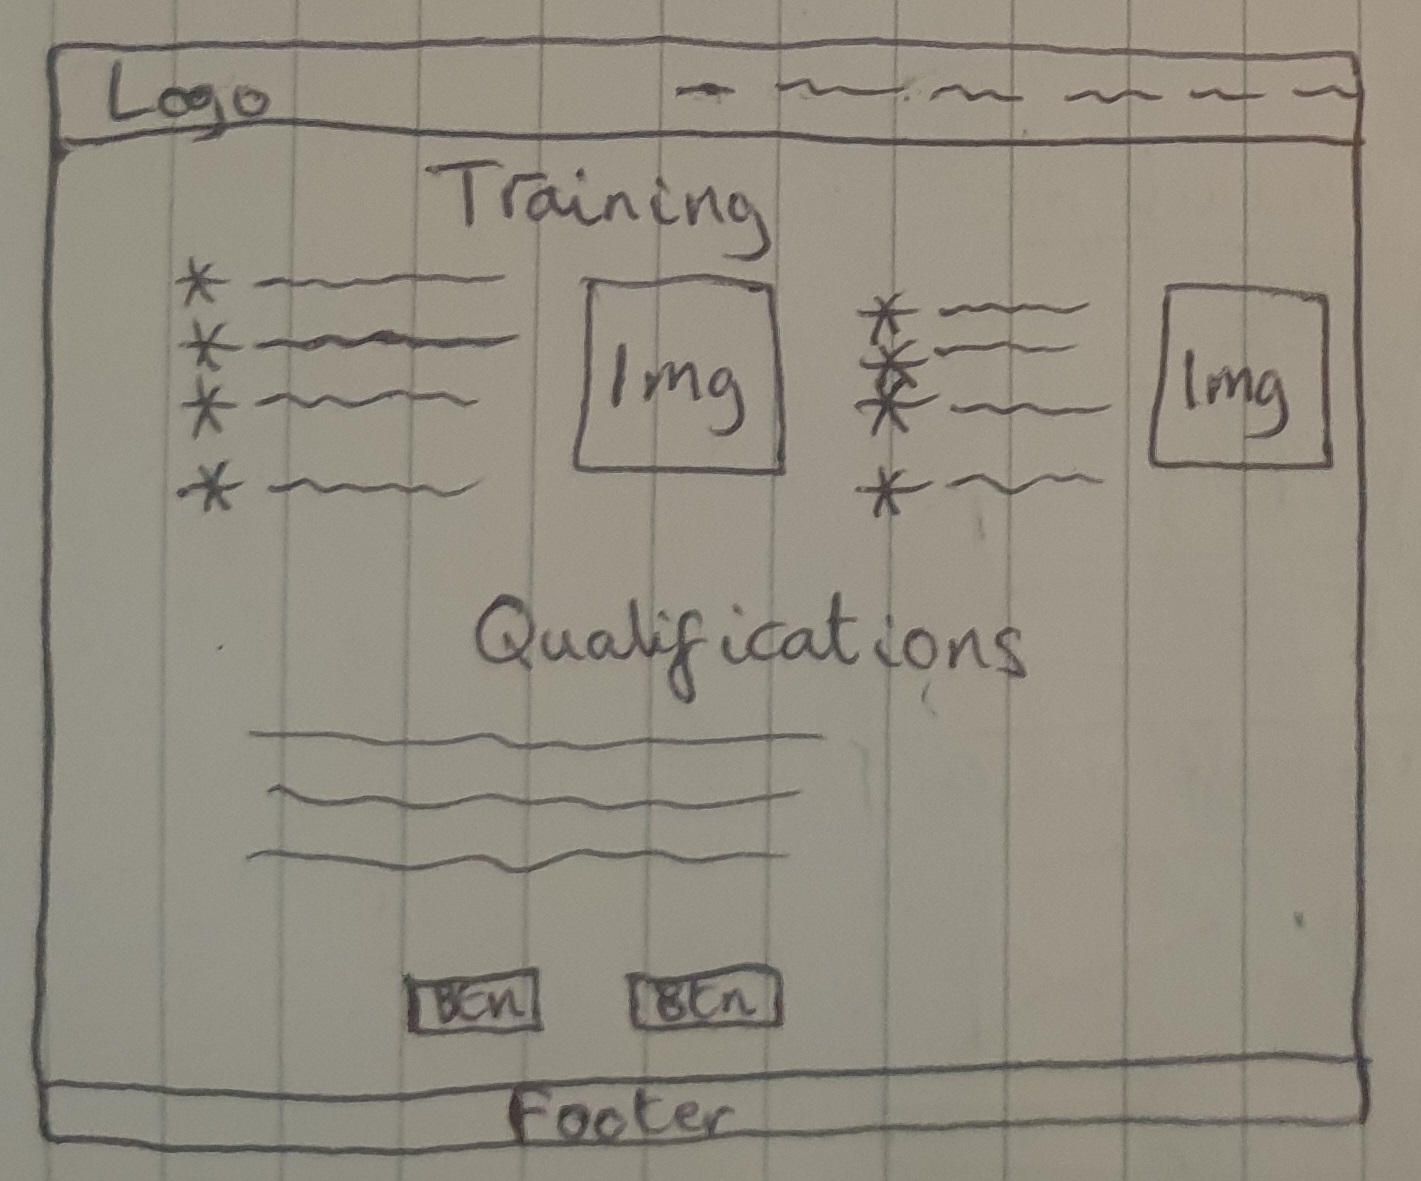 Logo
Training
Img
Img
Qualifications
Btn
Btn
Footer